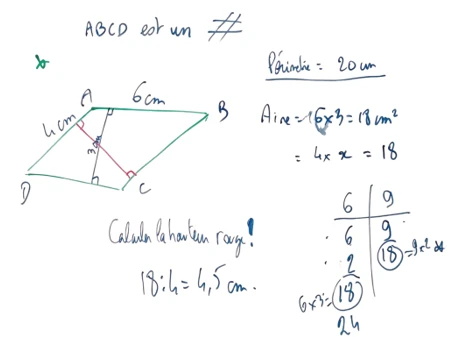 ABCD est un //
Périmètre = 20 cm
6cm
A
B
4cm
Aire = 6x3 = 18 cm²
= 4 x x = 18
3
D
C
6 | 9
6 | 9
2 | 18 = 9x2
6x3 = 18
24
Calculer la hauteur rouge!
18:4 = 4,5 cm.